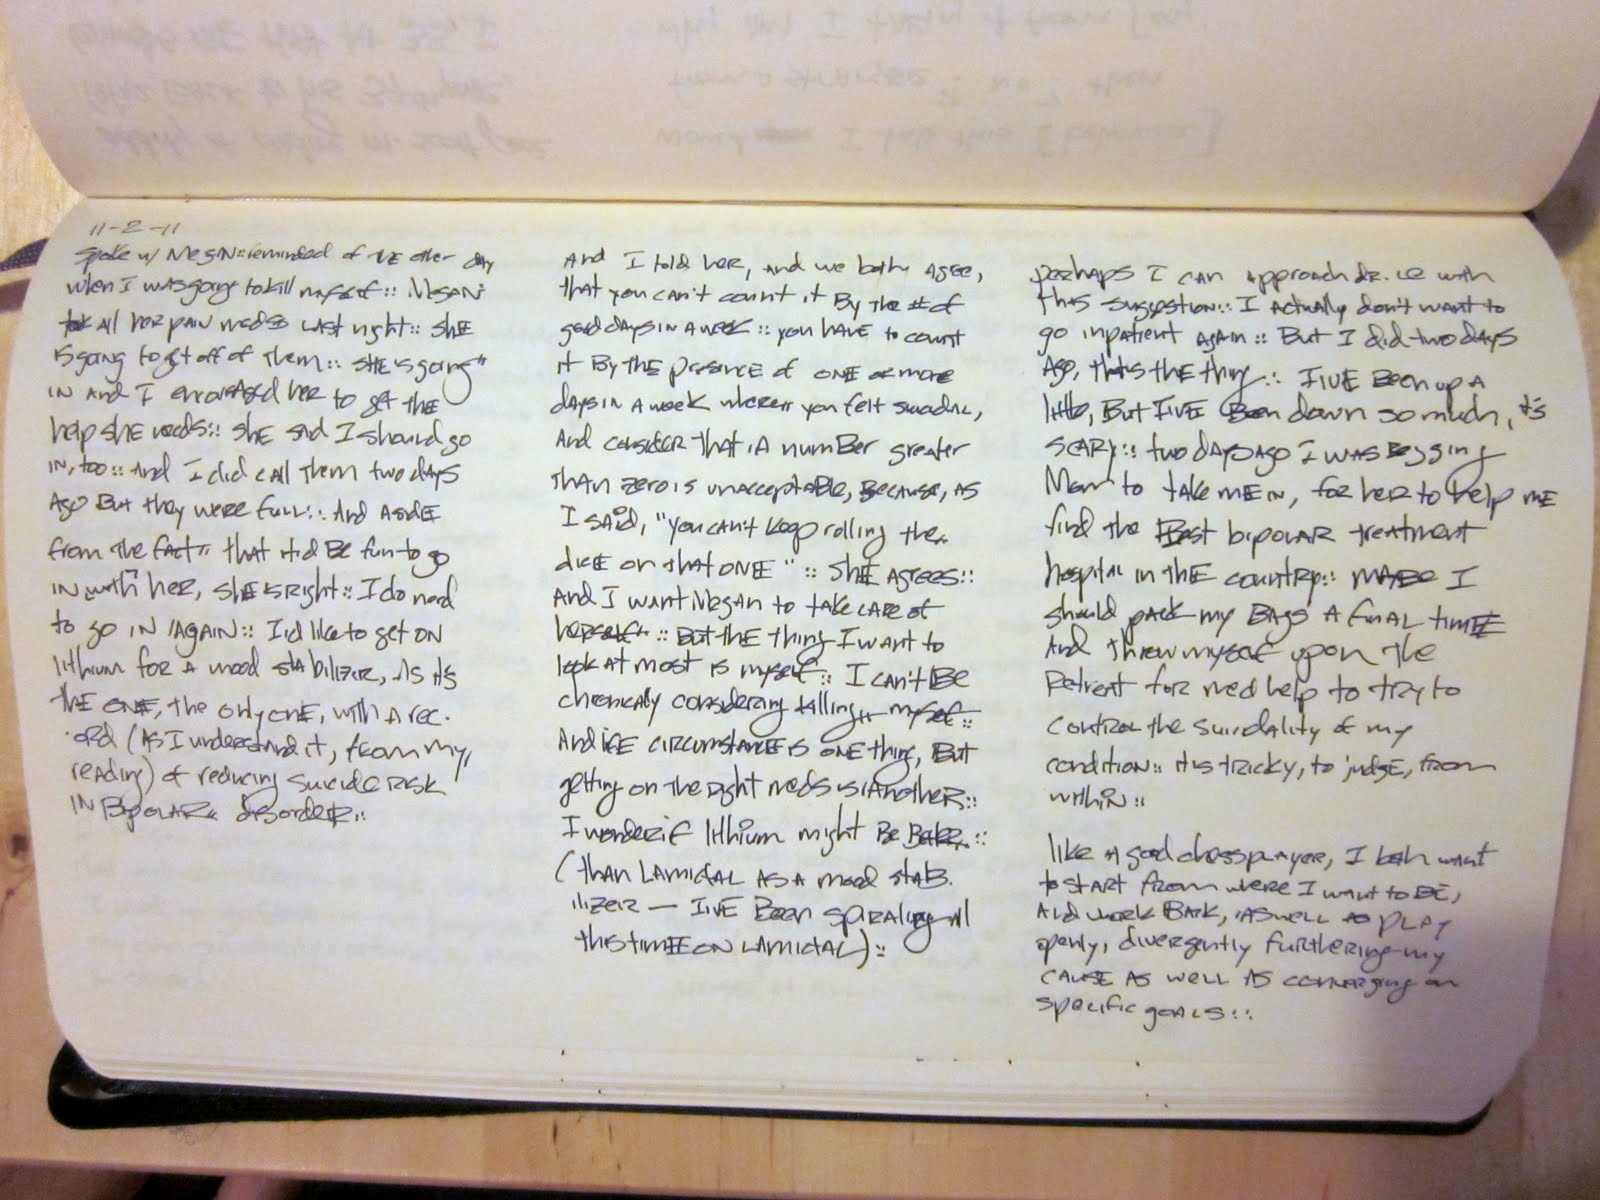 11-2-11
Spoke w/ Megan:: reminded of THE other day
when I was going to kill myself:: Megan
took all her pain meds last night:: she
is going to get off of them:: she is going
in and I encouraged her to get the
help she needs:: she said I should go
in, too:: And I did call them two days
ago But they were full:: And aside
from the fact that it'd Be fun to go
in with her, she is right:: I do need
to go in again:: I'd like to get on
lithium for a mood stabilizer, as it's
the one, the only one, with a rec-
ord (as I understand it, from my
reading) of reducing suicide risk
in Bipolar disorder::
And I told her, and we both agree,
that you can't count it By the # of
good days in a week:: you have to count
it By the presence of one or more
days in a week where you felt suicidal,
And consider that a number greater
than zero is unacceptable, Because, as
I said, "you can't keep rolling the
dice on that one":: she agrees::
And I want Megan to take care of
herself:: But the thing I want to
look at most is myself:: I can't Be
chronically considering killing myself::
And life circumstance is one thing, But
getting on the right meds is another::
I wonder if lithium might Be Better::
(than Lamictal as a mood stab-
ilizer — I've Been spiraling all
this time on Lamictal)::
perhaps I can approach dr. with
this suggestion:: I actually don't want to
go inpatient again:: But I did two days
ago, that's the thing:: I've Been up a
little, But I've Been down so much, it's
scary:: two days ago I was Begging
Mom to take me in, for her to help me
find the Best bipolar treatment
hospital in the country:: maybe I
should pack my Bags a final time
And throw myself upon the
Retreat for med help to try to
control the suicidality of my
condition:: it is tricky, to judge, from
within::
like a good chess player, I both want
to start from where I want to Be,
and work Back, as well as play
openly, divergently furthering my
cause as well as converging on
specific goals::